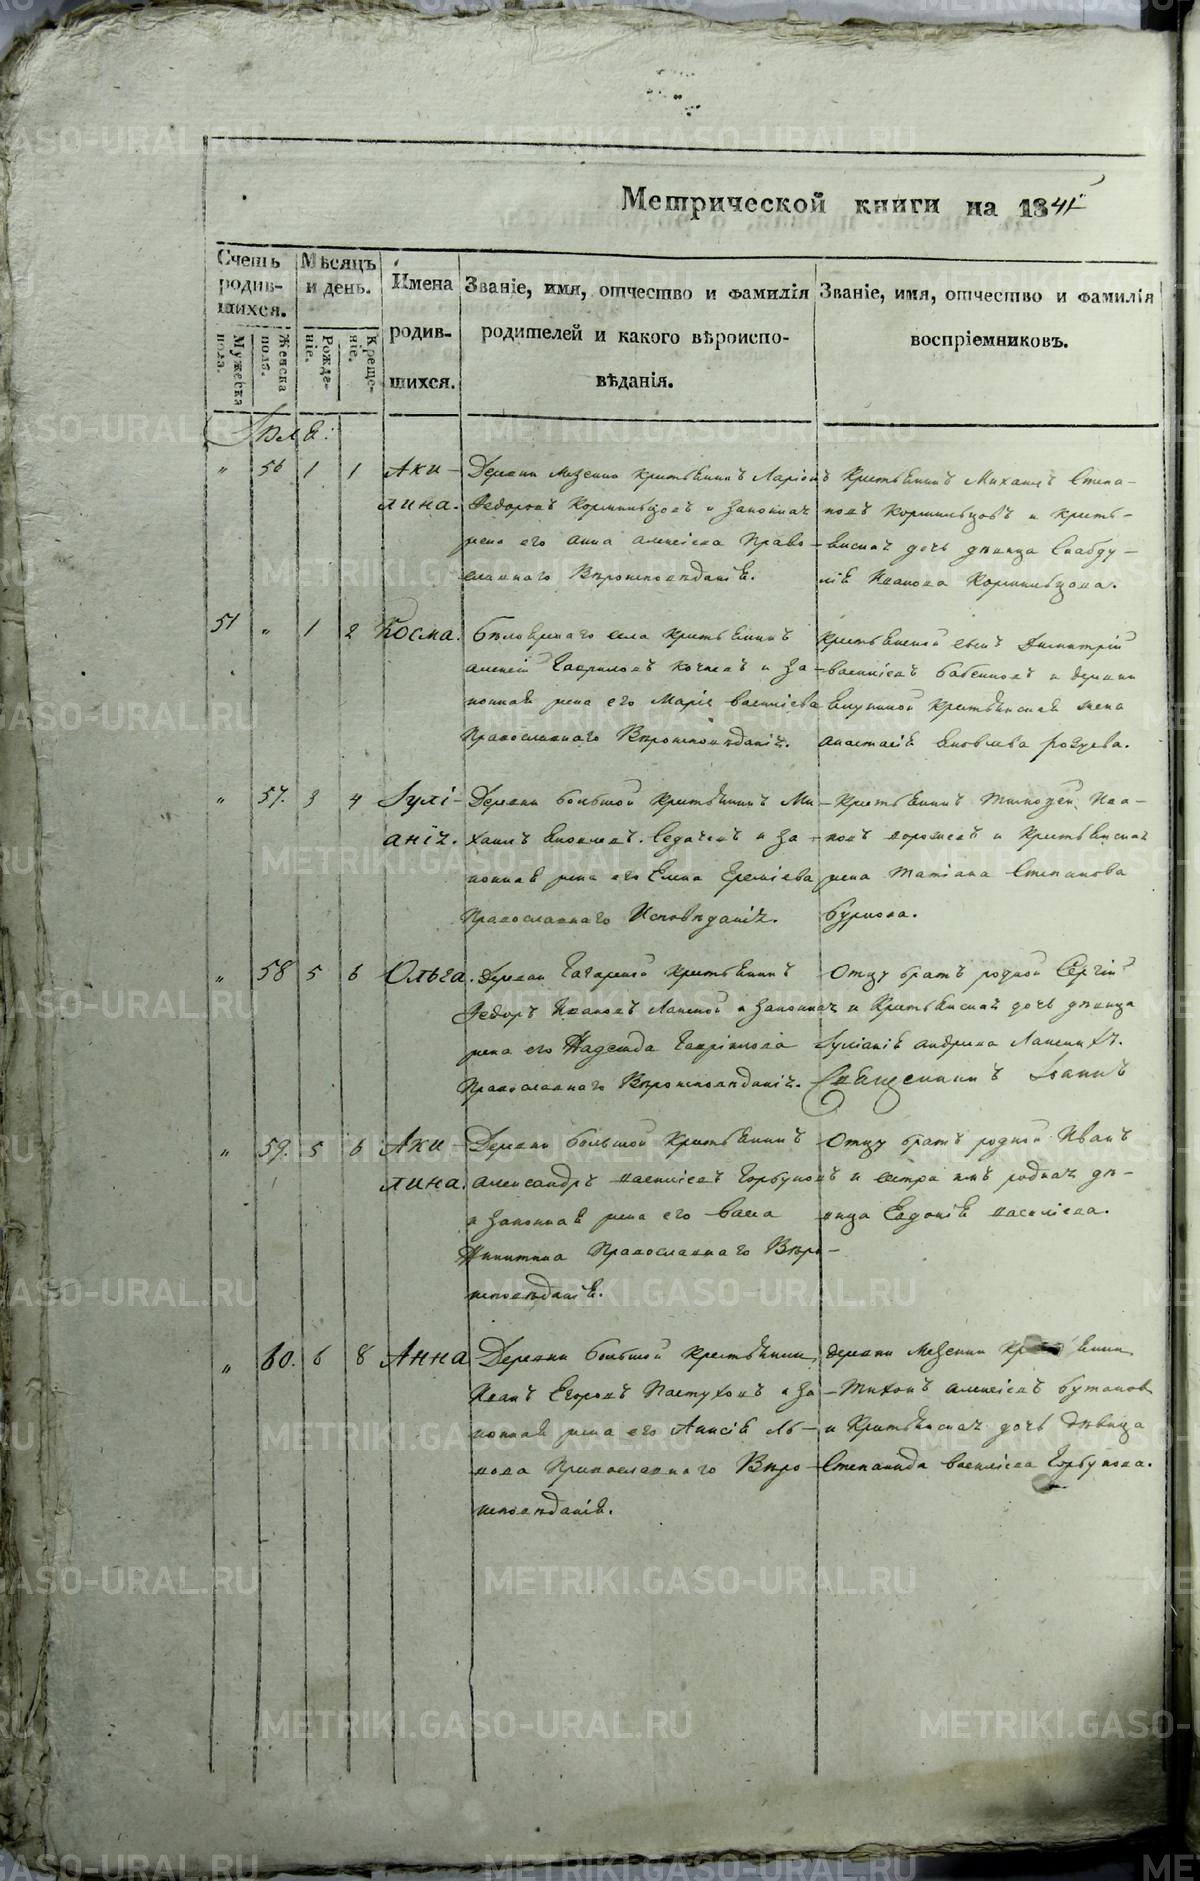 Метрической книги на 1841
Счетъ родившихся.
Мѣсяцъ и день.
Имена родившихся.
Званіе, имя, отчество и фамилія
родителей и какого вѣроиспо-
вѣданія.
Званіе, имя, отчество и фамилія
воспріемниковъ.
Мужеска полъ.
Женска полъ.
Рожде-
ніе.
Креще-
ніе.
" 56 1 1 Аки-
лина.
Деревни Мезенки Крестьянинъ Ларіонъ
Федоровъ Кормильцовъ и Законная
жена его Анна Алексіева Право-
славнаго Вѣроисповѣданія.
Крестьянинъ Михаилъ Степа-
новъ Кормильцовъ и Кресть-
янская дочь дѣвица
Иванова Кормильцова.
51 " 1 2 Косма.
села Крестьянинъ
Алексій Гавриловъ и За-
конная жена его Марія Василіева
Православнаго Вѣроисповѣданія.
Крестьянской сынъ Димитрій
Василіевъ и деревни
Крестьянская жена
Анастасія Яковлева
" 57. 3 4 Іулі-
анія.
Деревни Большой Крестьянинъ Ми-
хаилъ Яковлевъ и За-
конная жена его Елена Ереміева
Православнаго Исповѣданія.
Крестьянинъ Тимофей Ива-
новъ и Крестьянская
жена Татіана Степанова
" 58 5 6 Ольга.
Деревни Крестьянинъ
Федоръ Ивановъ и Законная
жена его Надежда
Православнаго Вѣроисповѣданія.
Отцу братъ родной Сергій
и Крестьянская дочь дѣвица
Іуліанія
Священникъ Іоаннъ
" 59. 5 6 Аки-
лина.
Деревни Большой Крестьянинъ
Александръ Василіевъ Горбуновъ
и Законная жена его
Никитина Православнаго Вѣро-
исповѣданія.
Отцу братъ родной Иванъ
и сестра имъ родная дѣ-
вица Евдокія Василіева.
" 60. 6 8 Анна
Деревни Большой Крестьянинъ
Иванъ Егоровъ Пастуховъ и За-
конная жена его Анисія Ль-
вова Православнаго Вѣро-
исповѣданія.
Деревни Мезенки
Тихонъ Алексіевъ
и Крестьянская дочь дѣвица
Степанида Василіева Горбунова.
METRIKI.GASO-URAL.RU